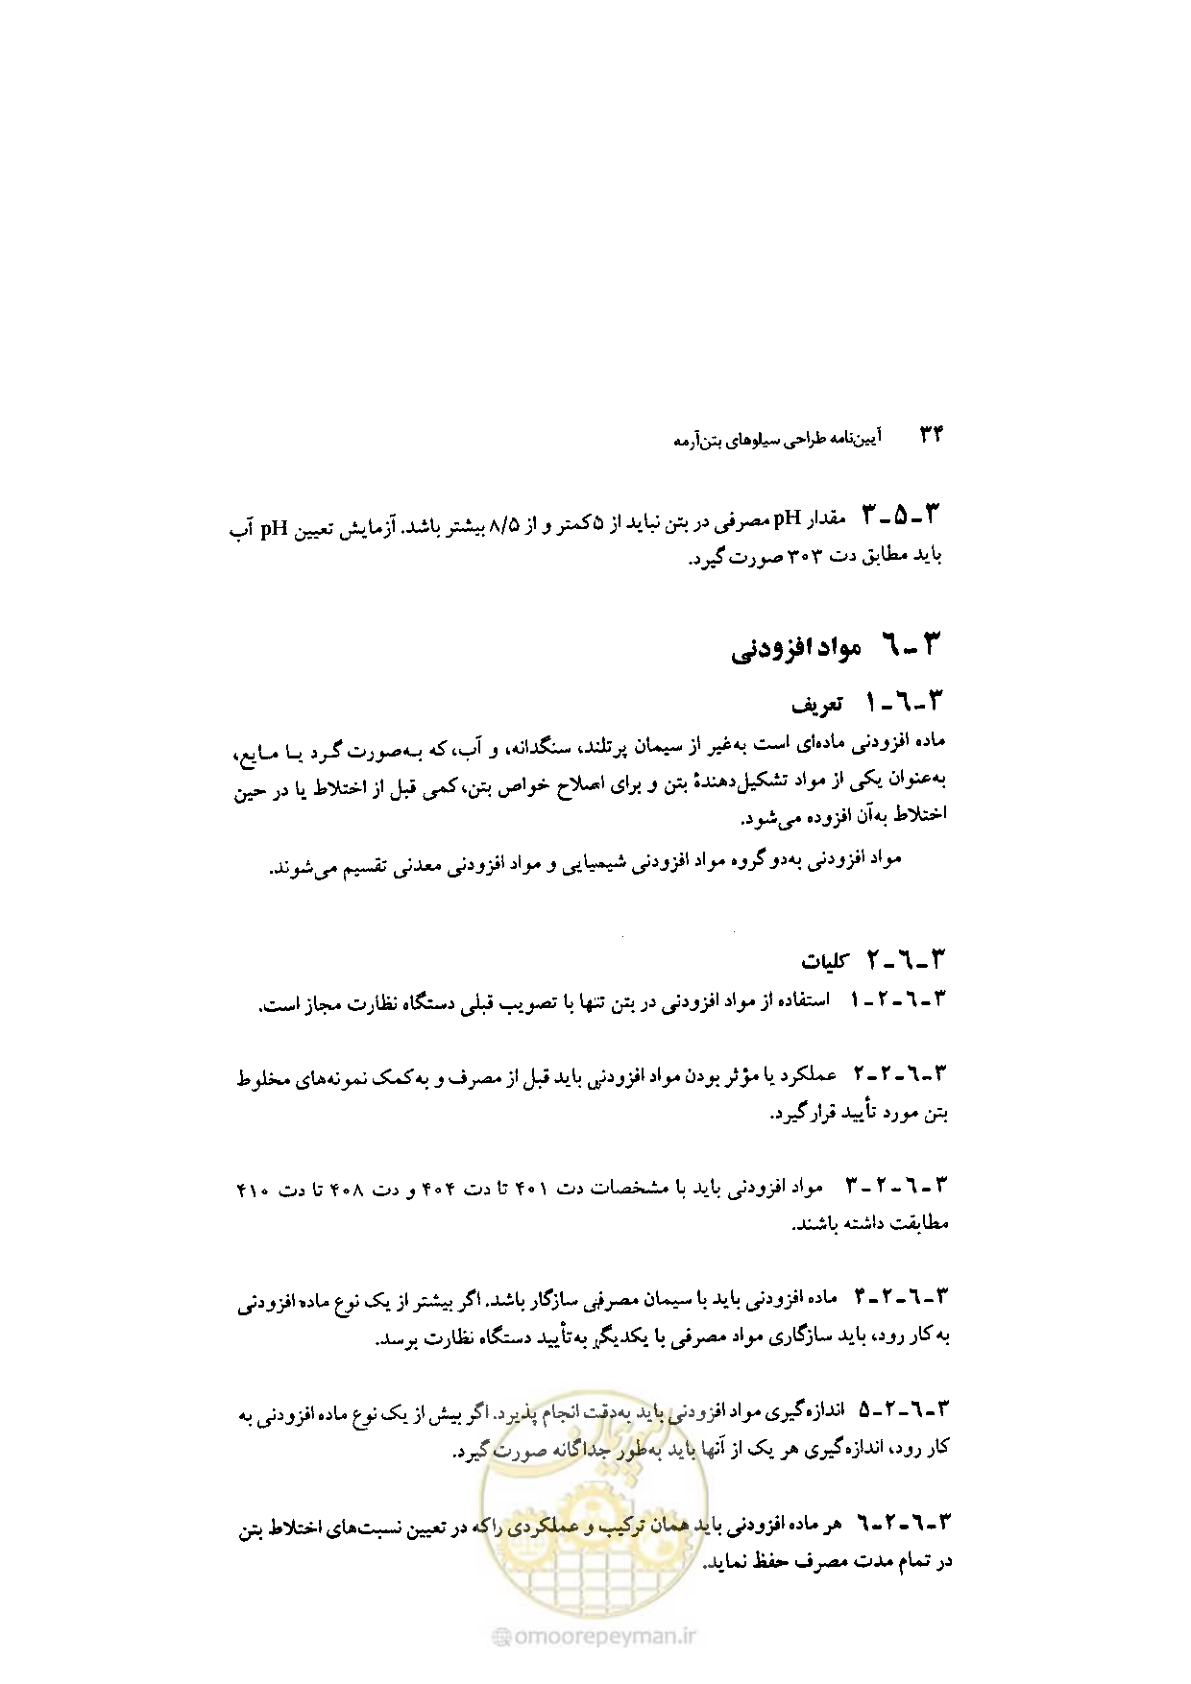 ۳۴ آیین‌نامه طراحی سیلوهای بتن‌آرمه
۳-۵-۳ مقدار pH مصرفی در بتن نباید از ۵ کمتر و از ۸/۵ بیشتر باشد. آزمایش تعیین pH آب
باید مطابق دت ۳۰۳ صورت گیرد.
۳-۶ مواد افزودنی
۳-۶-۱ تعریف
ماده افزودنی ماده‌ای است به‌غیر از سیمان پرتلند، سنگدانه، و آب، که به‌صورت گرد یا مایع،
به‌عنوان یکی از مواد تشکیل‌دهندهٔ بتن و برای اصلاح خواص بتن، کمی قبل از اختلاط یا در حین
اختلاط به‌آن افزوده می‌شود.
مواد افزودنی به‌دو گروه مواد افزودنی شیمیایی و مواد افزودنی معدنی تقسیم می‌شوند.
۳-۶-۲ کلیات
۳-۶-۲-۱ استفاده از مواد افزودنی در بتن تنها با تصویب قبلی دستگاه نظارت مجاز است.
۳-۶-۲-۲ عملکرد یا مؤثر بودن مواد افزودنی باید قبل از مصرف و به‌کمک نمونه‌های مخلوط
بتن مورد تأیید قرار گیرد.
۳-۶-۲-۳ مواد افزودنی باید با مشخصات دت ۴۰۱ تا دت ۴۰۴ و دت ۴۰۸ تا دت ۴۱۰
مطابقت داشته باشند.
۳-۶-۲-۴ ماده افزودنی باید با سیمان مصرفی سازگار باشد. اگر بیشتر از یک نوع ماده افزودنی
به کار رود، باید سازگاری مواد مصرفی با یکدیگر به‌تأیید دستگاه نظارت برسد.
۳-۶-۲-۵ اندازه‌گیری مواد افزودنی باید به‌دقت انجام پذیرد. اگر بیش از یک نوع ماده افزودنی به
کار رود، اندازه‌گیری هر یک از آنها باید به‌طور جداگانه صورت گیرد.
۳-۶-۲-۶ هر ماده افزودنی باید همان ترکیب و عملکردی را که در تعیین نسبت‌های اختلاط بتن
در تمام مدت مصرف حفظ نماید.
امور پیمان
@omoorepeyman.ir